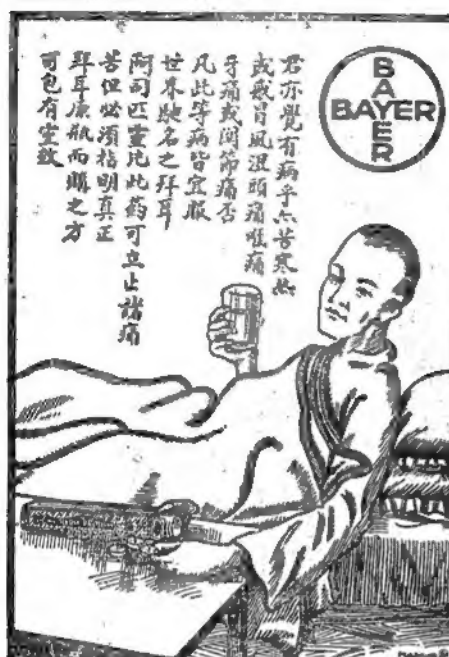 BAYER
BAYER
君亦覺有病乎亦苦寒熱
或感冒風溼頭痛喉痛
牙痛或関節痛否
凡此等病皆宜服
世界馳名之拜耳
阿司匹靈片此药可立止諸痛
苦但必須指明真正
拜耳原瓶而購之方
可包有空效